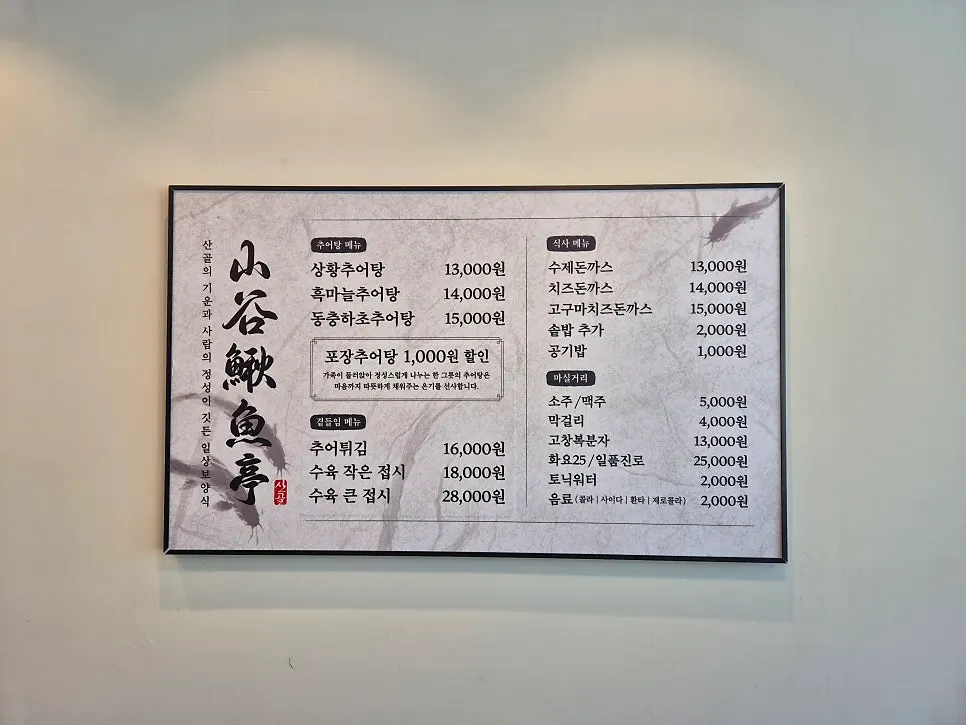 산골의 기운과 사람의 정성이 깃든 일상보양식
小谷鰍魚亭
산골
추어탕 메뉴
상황추어탕 13,000원
흑마늘추어탕 14,000원
동충하초추어탕 15,000원
포장추어탕 1,000원 할인
가족이 둘러앉아 정성스럽게 나누는 한 그릇의 추어탕은
마음까지 따뜻하게 채워주는 온기를 선사합니다.
곁들임 메뉴
추어튀김 16,000원
수육 작은 접시 18,000원
수육 큰 접시 28,000원
식사 메뉴
수제돈까스 13,000원
치즈돈까스 14,000원
고구마치즈돈까스 15,000원
솥밥 추가 2,000원
공기밥 1,000원
마실거리
소주/맥주 5,000원
막걸리 4,000원
고창복분자 13,000원
화요25/일품진로 25,000원
토닉워터 2,000원
음료(콜라|사이다|환타|제로콜라) 2,000원